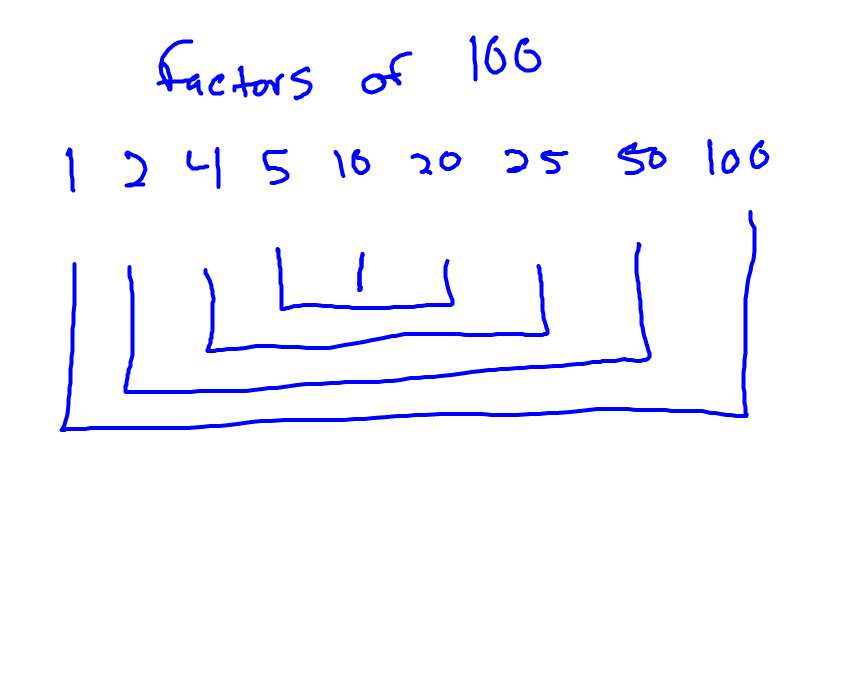 factors of 100
1 2 4 5 10 20 25 50 100